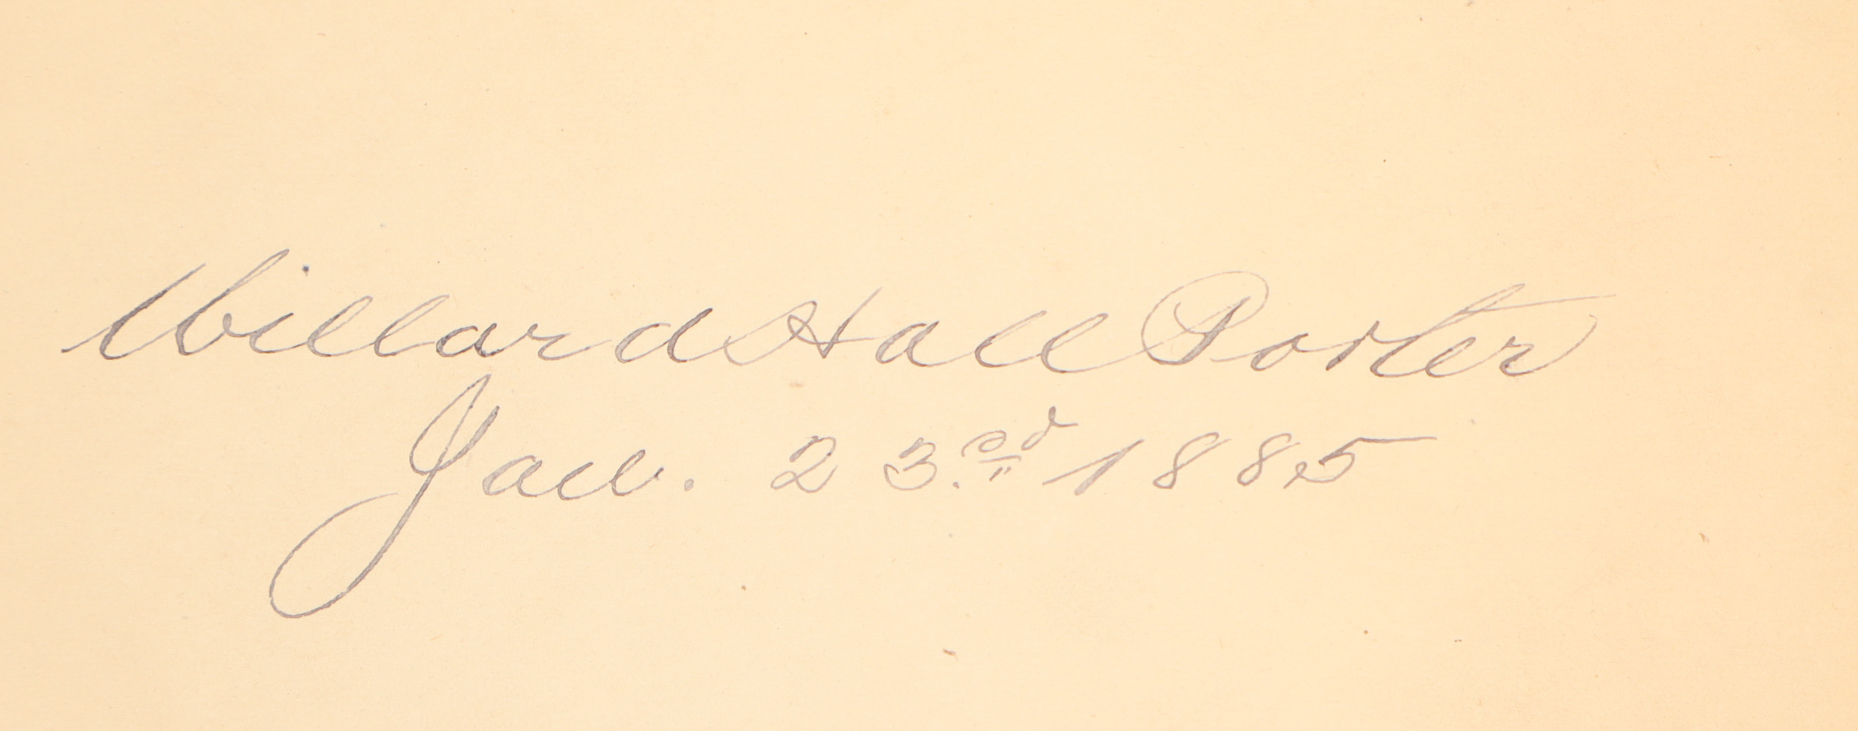 Willard Hall Porter
Jan. 23.rd 1885